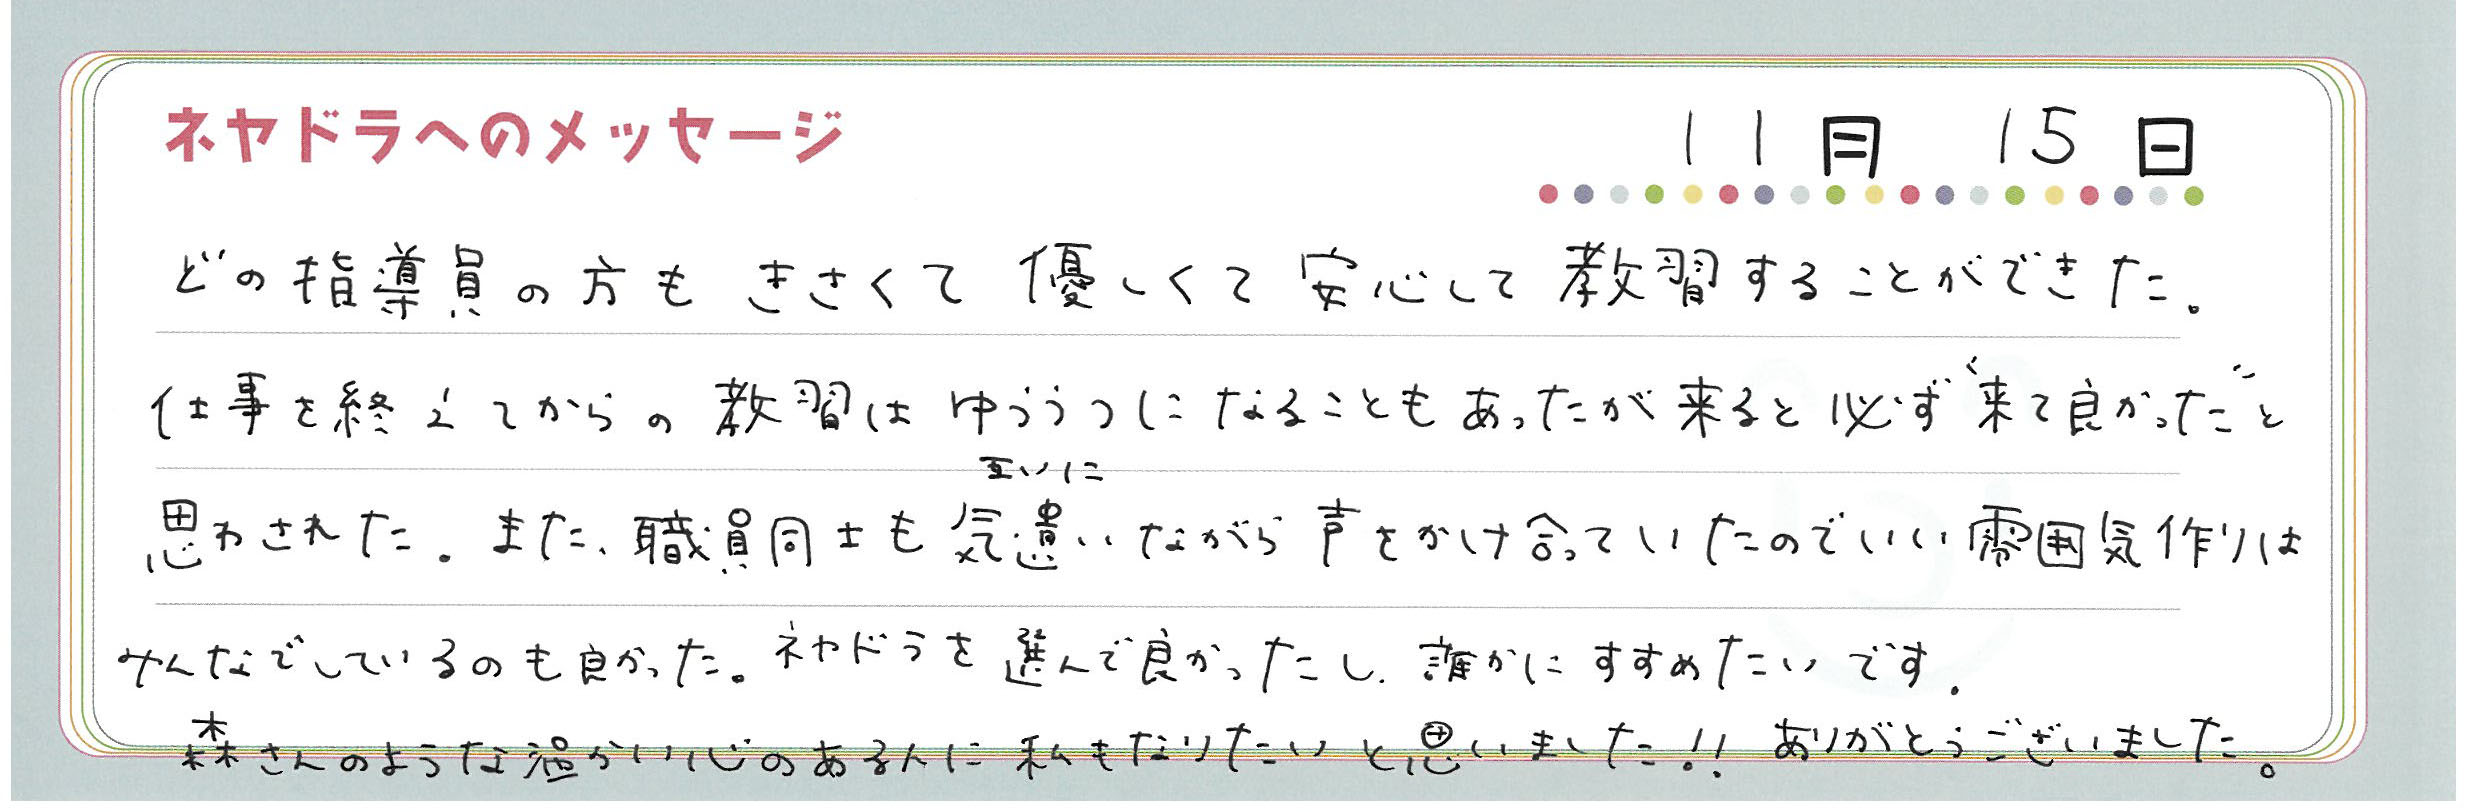 ネヤドラへのメッセージ
11月 15日
どの指導員の方も きさくて 優しくて 安心して 教習することができた。
仕事を終えてからの 教習は ゆううつに なることもあったが 来ると 必ず“来て良かった”と
互いに
思わされた。また、職員同士も 気遣いながら 声をかけ合っていたのでいい雰囲気作りは
みんなでしているのも良かった。ネヤドラを 選んで良かったし、誰かにすすめたいです。
森さんのような温かい心のある人に 私もなりたいと思いました!! ありがとうございました。